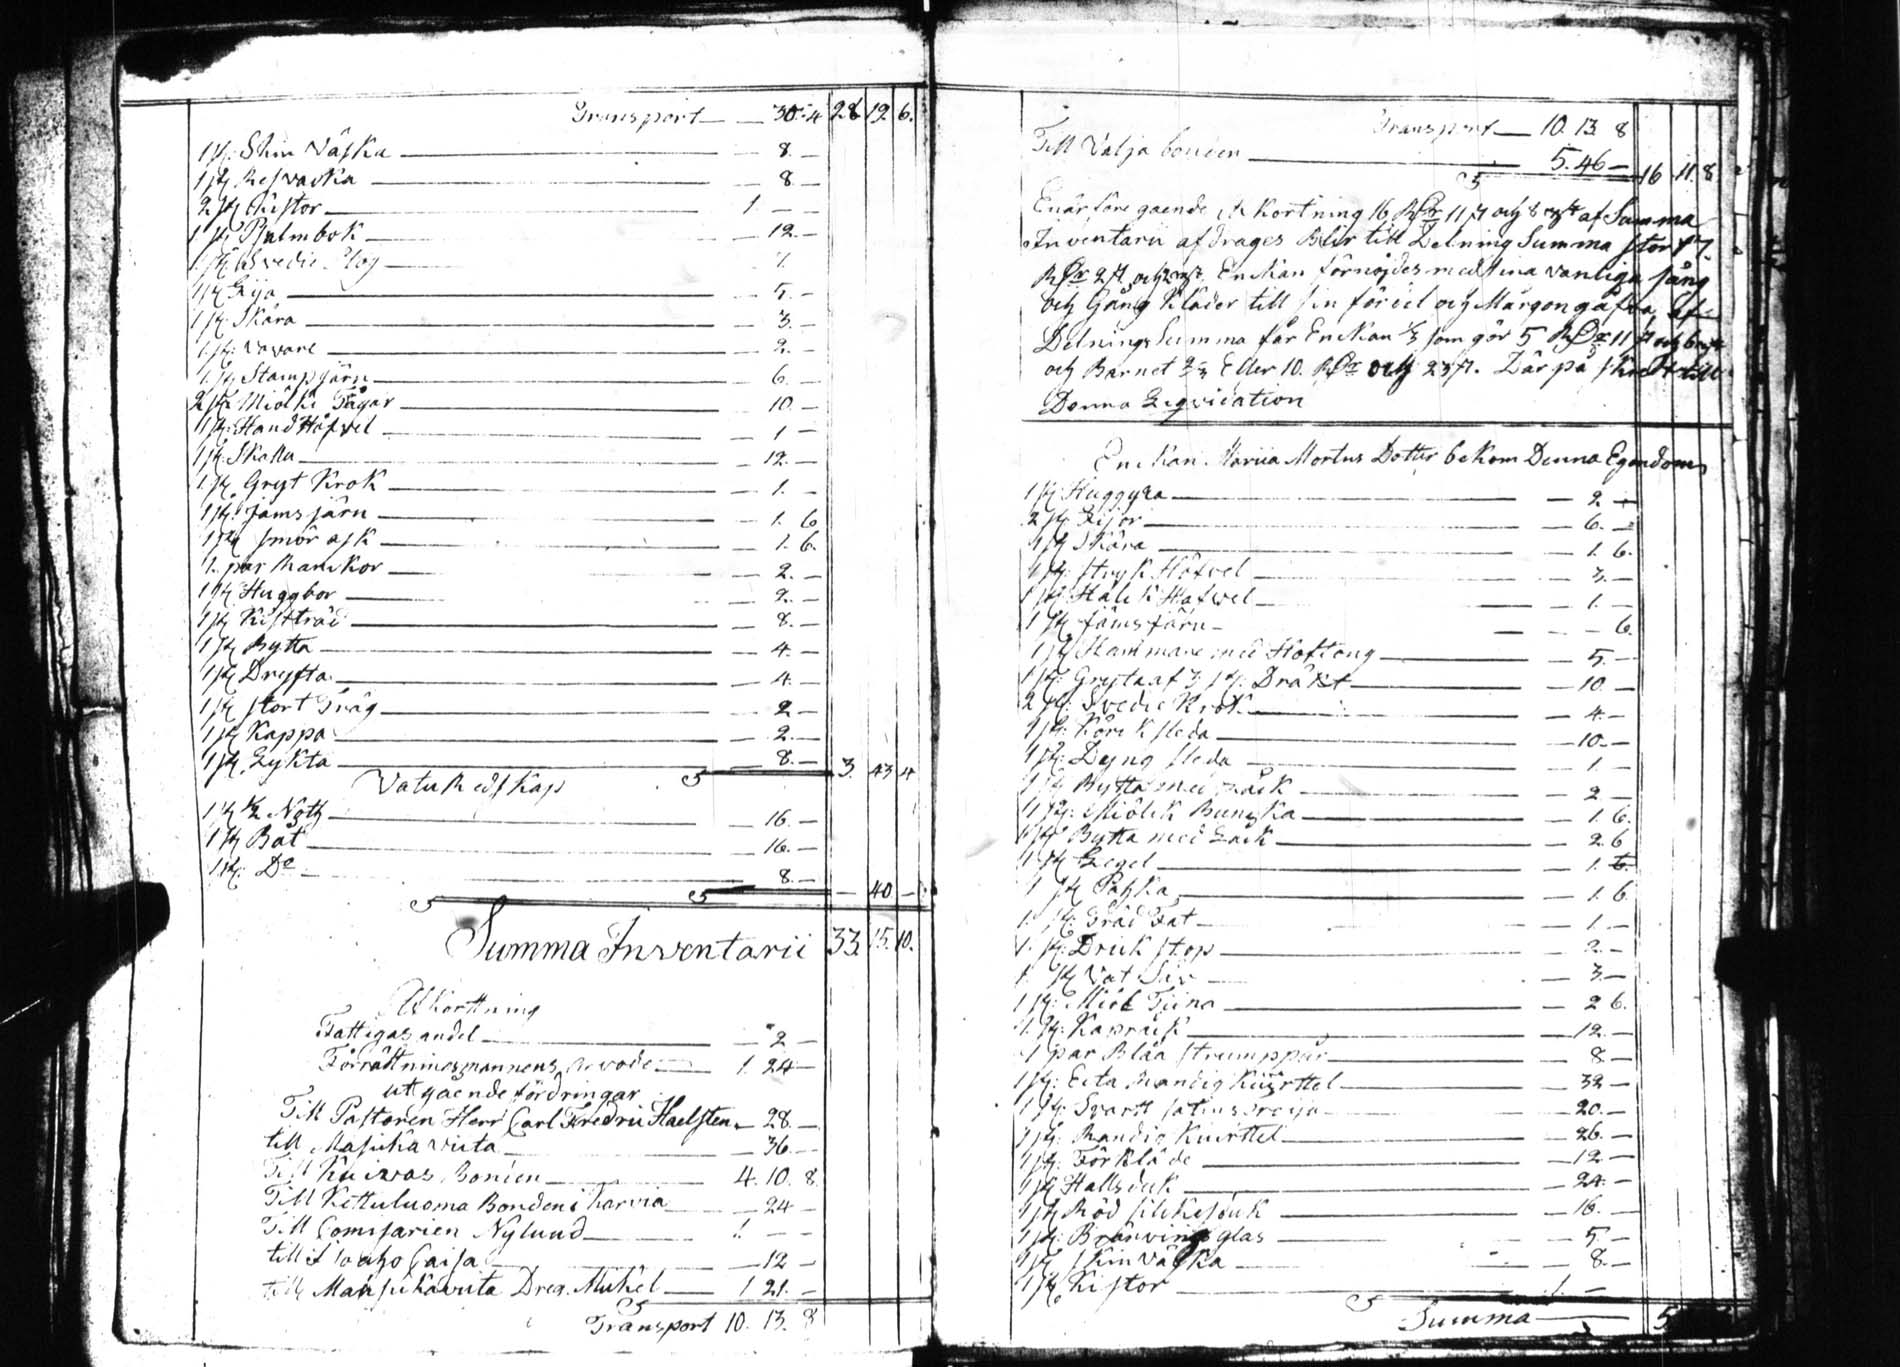 Transport — 30. 4 28 12 6.
1 st: Skin Väska — 8. —
1 st Resvaska — 8. —
2 st Kistor — 1 — —
1 st Psalmbok — 12. —
1 st Svedie Plog
1 st Lija — 5. —
1 st Skära — 3. —
1 st: Navare — 2. —
1 st Stampjärn — 6. —
2 st Miölk Tågar — 10. —
1 st: Hand Höfvel — 1 —
1 st. Skålla — 12. —
1 st Gryt Krok — 1. —
1 st. Jämsjärn — 1. 6
1 st smör ask — 1. 6.
1. par — 2. —
1 st Huggbor — 2. —
1 st Kisträd — 8. —
1 st Bytta — 4. —
1 st Dryfta — 4. —
1 st stort Tråg — 2 —
1 st Kappa — 2. —
1 st Lykta — 8. — 3. 43 4
Vatu Redskap
1 st ½ Noth — 16. —
1 st Båt — 16. —
1 st: Do — 8. — — 40 —
Summa Inventarii 33. 15. 10.
Afkortning
Fattigas andel — 2 —
Förrättningsmannens arvode — 1. 24 —
utgaende fördringar
Till Pastoren Herr Carl Fredric Haelsten — 28. —
till vuta — 36 —
Till Bonden — 4. 10. 8
Till Kettuluoma Bonden i harvia — 24 —
Till Comissarien Nylund — 1. — —
till Caisa — 12 —
till Drag. Mickel — 1 21. —
Transport 10. 13. 8
Transport — 10. 13 8
Till Valja bonden — 5. 46 — 16 11. 8
Enär före gaende afkortning 16 Rdr 11 st och 8 rst af Summa
Inventarii afdrages Blir till Delning Summa stor 17.
Rdr 2 st och 2 rst Enckan förnöjdes med sina vanliga säng
och Gång Kläder till sin fördel och Märgongåfva, af
Delnings Summa får Enckan ⅓ som gör 5 Rdr 11 st och 6 rst
och Barnet ⅔ Eller 10. Rdr och 23 st. Där på skred till
Denna Liqvidation
Enckan Maria Mortus Dotter bekom Denna Egendom
1 st Huggyxa — 2 —
2 st: Lijor — 6. —
1 st Skära — 1. 6.
1 st: stryk Höfvel — 3. —
1 st Hålck Höfvel — 1. —
1 st jämsjärn — 6.
1 st Hammare med Hoftong — 5. —
1 st: Gryta af — 10. —
2 st: Svedie Krok — 4. —
1 st: Kör K sleda — 10. —
1 st: Dyng sleda — 1. —
1 st Bytta med — 2 —
1 st: Miölck Buncka — 1. 6.
1 st Bytta med Låck — 2 6
1 st Legel — 1. 6.
1 st Påska — 1. 6
1. st: Träd Fat — 1. —
1. st: Drick stop — 2. —
1 st Vat — 3 —
1 st: Miöl Tiina — 2 6.
1. st: Kapråck — 12. —
1 par Blåa strumppår — 8 —
1 st: Eita Randig Kiorttel — 32 —
1 st: Svartt — 20. —
1 st: Randig Kiorttel — 26. —
1 st: Förkläde — 12 —
1 st Halsduk — 24. —
1 st Röd silckes duk — 16. —
1 st: Bränvins glas — 5 —
1 st skin Väska — 8. —
1 st Kistor — 1. —
Summa — 5